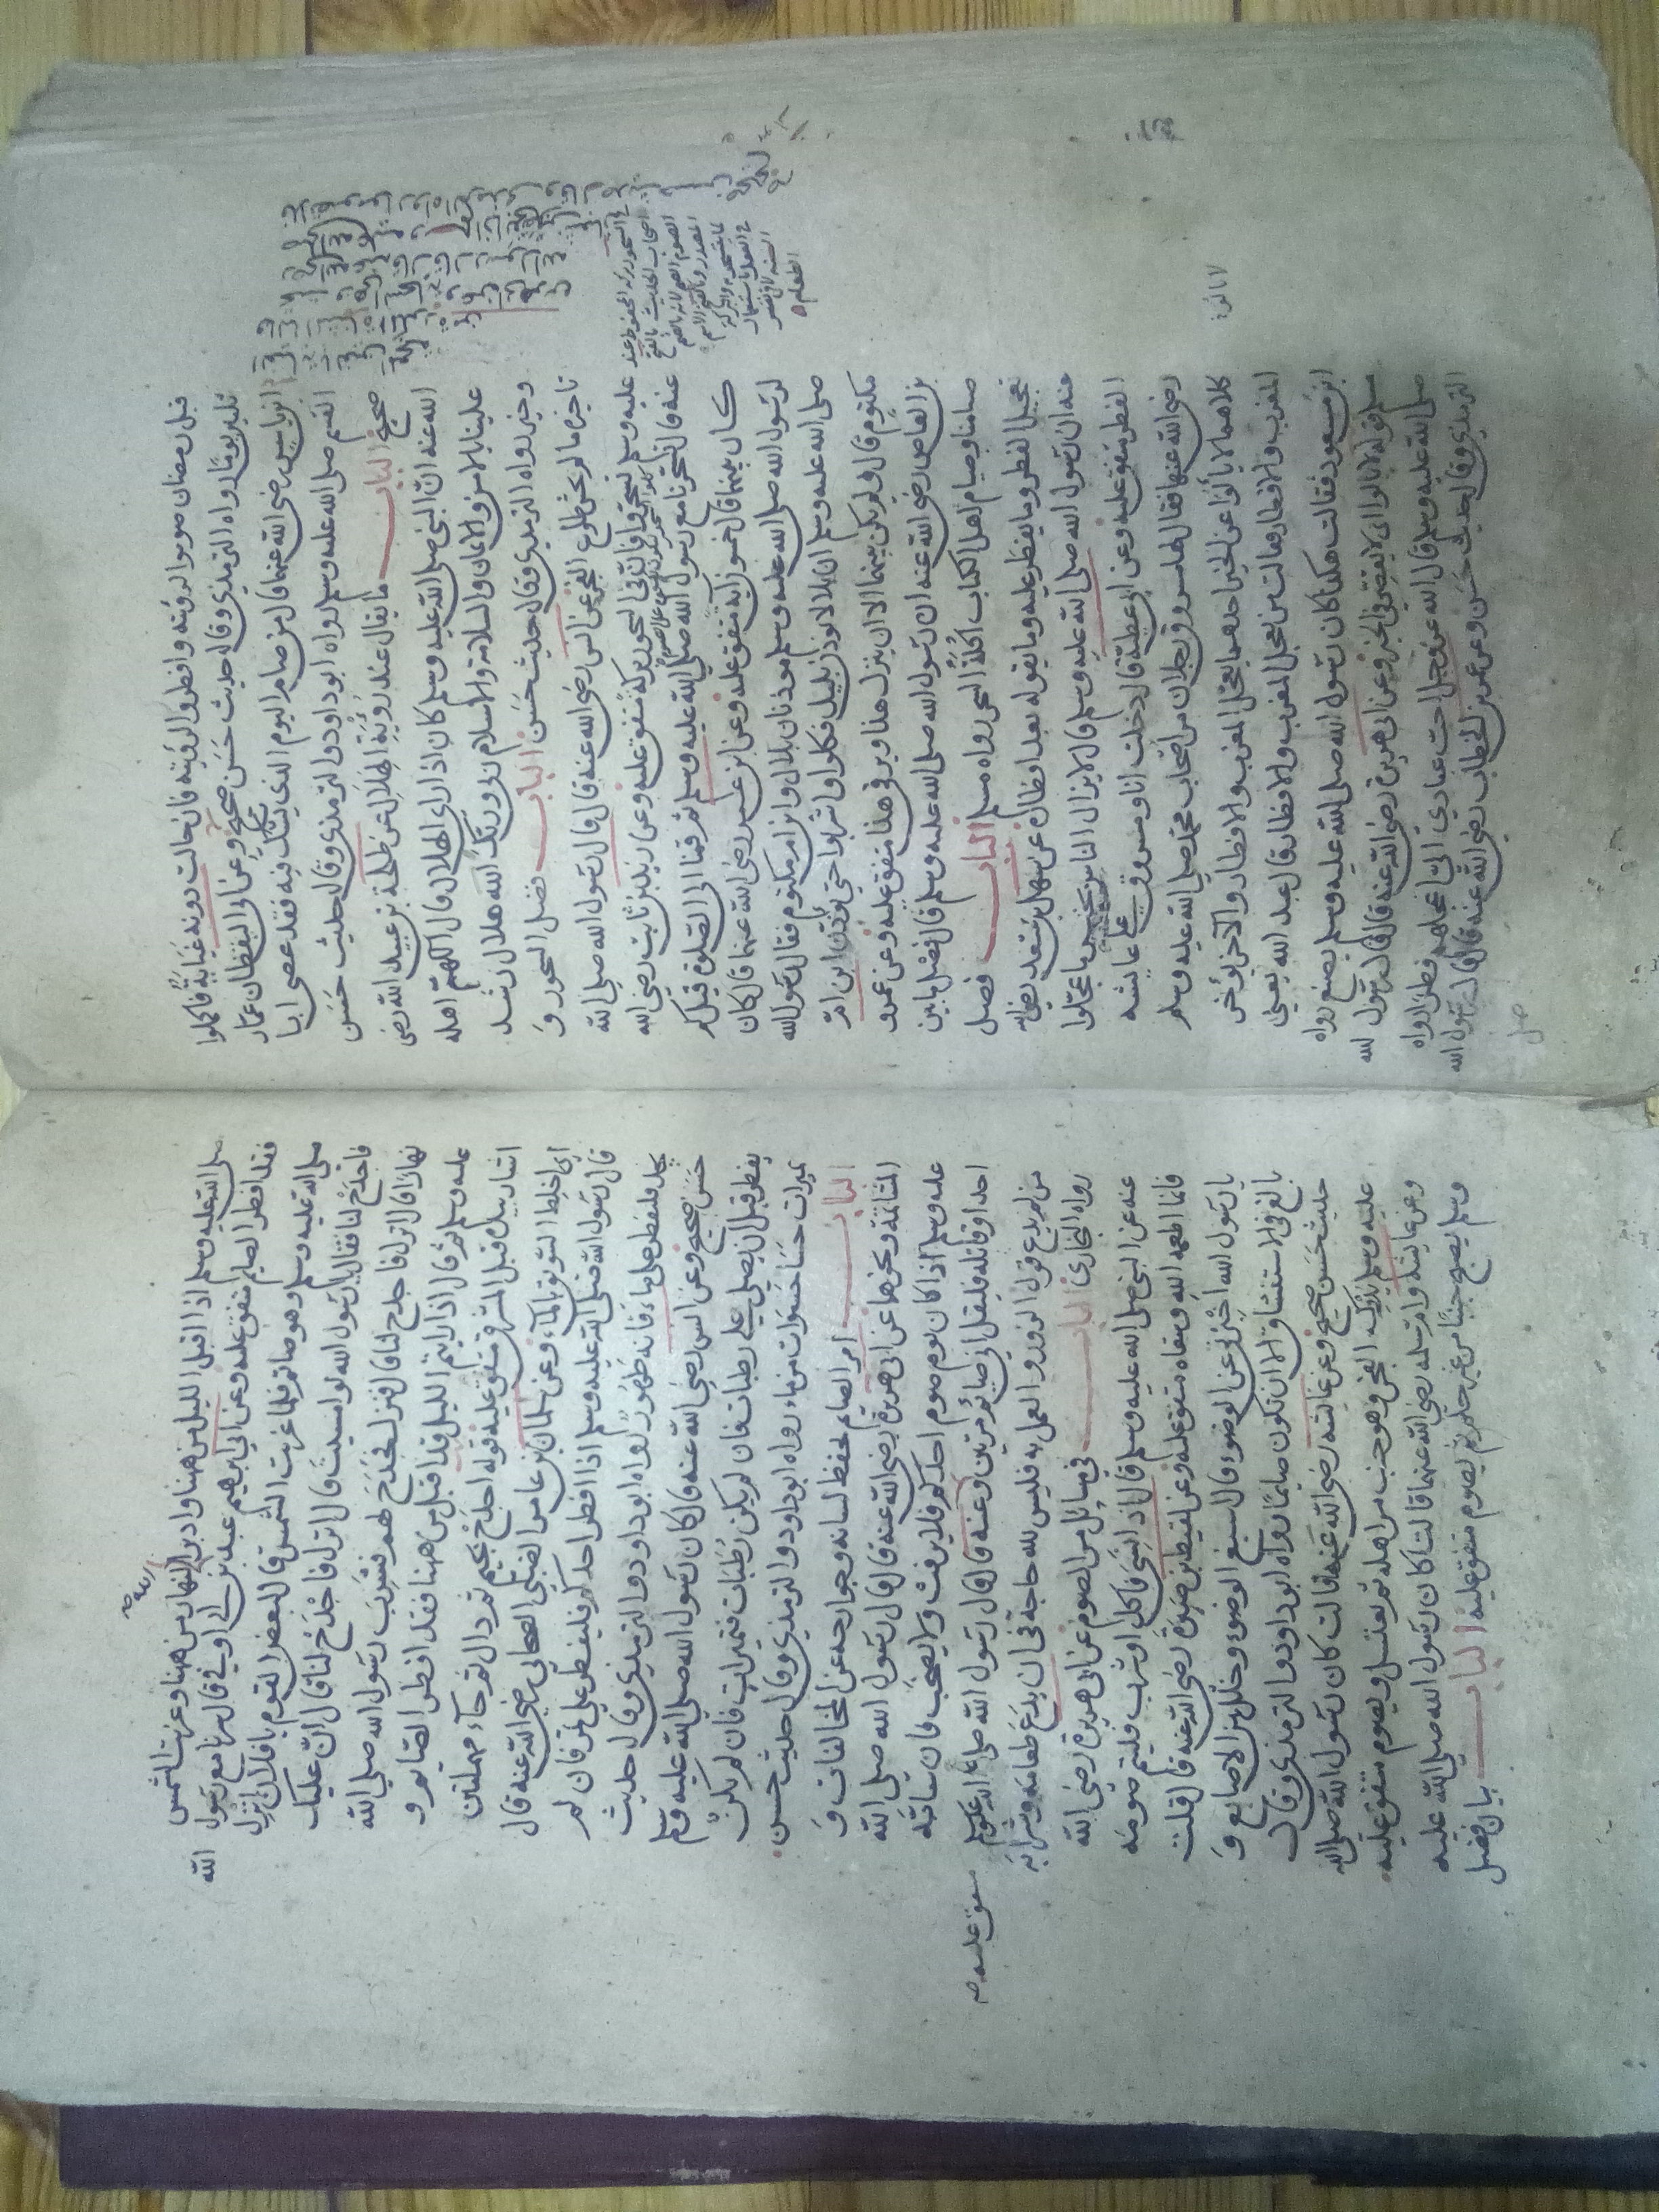 قبل رمضان صوموا لرؤيته وافطروا لرؤيته فان حالت دونه غيابة فاكملوا
ثلثين يوما رواه الترمذي وقال حديث حسن صحيح وعن ابي اليقظان عمار
ابن ياسر رضي الله عنهما قال من صام اليوم الذي يشك فيه فقد عصى ابا
القسم صلى الله عليه وسلم رواه ابو داود والترمذي وقال حديث حسن
صحيح الباب ما يقال عند رؤية الهلال عن طلحة بن عبيد الله رضي
الله عنه ان النبي صلى الله عليه وسلم كان اذا راى الهلال قال اللهم اهله
علينا بالامن والايمان والسلامة والاسلام ربي وربك الله هلال رشد
وخير رواه الترمذي وقال حديث حسن الباب فضل السحور و
تاخيره ما لم يخش طلوع الفجر عن انس رضي الله عنه قال قال رسول الله صلى الله
عليه وسلم تسحروا فان في السحور بركة متفق عليه وعن زيد بن ثابت رضي الله
عنه قال تسحرنا مع رسول الله صلى الله عليه وسلم ثم قمنا الى الصلوة قيل كم
كان بينهما قال خمسون اية متفق عليه وعن ابن عمر رضي الله عنهما قال كان
لرسول الله صلى الله عليه وسلم موذنان بلال وابن ام مكتوم فقال رسول الله
صلى الله عليه وسلم ان بلالا يوذن بليل فكلوا واشربوا حتى يؤذن ابن ام
مكتوم قال ولم يكن بينهما الا ان ينزل هذا ويرقى هذا متفق عليه وعن عمرو
بن العاص رضي الله عنه ان رسول الله صلى الله عليه وسلم قال فصل ما بين
صيامنا وصيام اهل الكتاب اكلة السحر رواه مسلم الباب فضل
تعجيل الفطر وما يفطر عليه وما يقوله بعد افطاره عن سهل بن سعد رضي الله
عنه ان رسول الله صلى الله عليه وسلم قال لا يزال الناس بخير ما عجلوا
الفطر متفق عليه وعن ابي عطية قال دخلت انا ومسروق على عايشه
رضي الله عنها فقال لها مسروق رجلان من اصحاب محمد صلى الله عليه وسلم
كلاهما لا يألوا عن الخير احدهما يعجل المغرب والافطار والآخر يؤخر
المغرب والافطار فقالت من يعجل المغرب والافطار قال عبد الله يعني
ابن مسعود فقالت هكذا كان رسول الله صلى الله عليه وسلم يصنع رواه
مسلم قوله لا يألوا اي لا يقصر في الخير وعن ابي هريرة رضي الله عنه قال قال رسول الله
صلى الله عليه وسلم قال الله عز وجل احب عبادي الي اعجلهم فطرا رواه
الترمذي وقال حديث حسن وعن عمر بن الخطاب رضي الله عنه قال قال رسول الله
في السحور بركة المحفوظ عند
اصحاب الحديث بالفتح
الطعام
لا يألون
صلى الله عليه وسلم اذا اقبل الليل من ههنا وادبر النهار من ههنا وغربت الشمس
فقد افطر الصايم متفق عليه وعن ابي ابرهيم عبد الله بن ابي اوفى قال سرنا مع رسول الله
صلى الله عليه وسلم وهو صائم فلما غربت الشمس قال لبعض القوم يا فلان انزل
فاجدح لنا فقال يا رسول الله لو امسيت قال انزل فاجدح لنا قال ان عليك
نهارا قال انزل فاجدح لنا قال فنزل فجدح لهم فشرب رسول الله صلى الله
عليه وسلم ثم قال اذا رايتم الليل قد اقبل من ههنا فقد افطر الصايم و
اشار بيده قبل المشرق متفق عليه قوله اجدح بجيم ثم دال ثم حاء مهملتين
اي اخلط السويق بالماء وعن سلمان بن عامر الضبي الصحابي رضي الله عنه قال
قال رسول الله صلى الله عليه وسلم اذا افطر احدكم فليفطر على تمر فان لم
يجد فليفطر على ماء فانه طهور رواه ابو داود والترمذي وقال حديث
حسن صحيح وعن انس رضي الله عنه قال كان رسول الله صلى الله عليه وسلم
يفطر قبل ان يصلي على رطبات فان لم يكن رطبات فتميرات فان لم يكن
تميرات حسا حسوات من ماء رواه ابو داود والترمذي وقال حديث حسن
الباب امر الصايم بحفظ لسانه وجوارحه عن المخالفات و
المشاتمة ونحوها عن ابي هريرة رضي الله عنه قال قال رسول الله صلى الله
عليه وسلم اذا كان يوم صوم احدكم فلا يرفث ولا يصخب فان سابه
احد او قاتله فليقل اني صائم متفق عليه وعنه قال قال رسول الله صلى الله عليه وسلم
من لم يدع قول الزور والعمل به فليس لله حاجة في ان يدع طعامه وشرابه
رواه البخاري الباب في مسائل من الصوم عن ابي هريرة رضي الله
عنه عن النبي صلى الله عليه وسلم قال اذا نسي فاكل او شرب فليتم صومه
فانما اطعمه الله وسقاه متفق عليه وعن لقيط بن صبرة رضي الله عنه قال قلت
يا رسول الله اخبرني عن الوضوء قال اسبغ الوضوء وخلل بين الاصابع و
بالغ في الاستنشاق الا ان تكون صائما رواه ابو داود والترمذي وقال
حديث حسن صحيح وعن عايشه رضي الله عنها قالت كان رسول الله صلى الله
عليه وسلم يدركه الفجر وهو جنب من اهله ثم يغتسل ويصوم متفق عليه
وعن عايشه وام سلمه رضي الله عنهما قالتا كان رسول الله صلى الله عليه
وسلم يصبح جنبا من غير حلم ثم يصوم متفق عليه الباب بيان فضل
متفق عليه